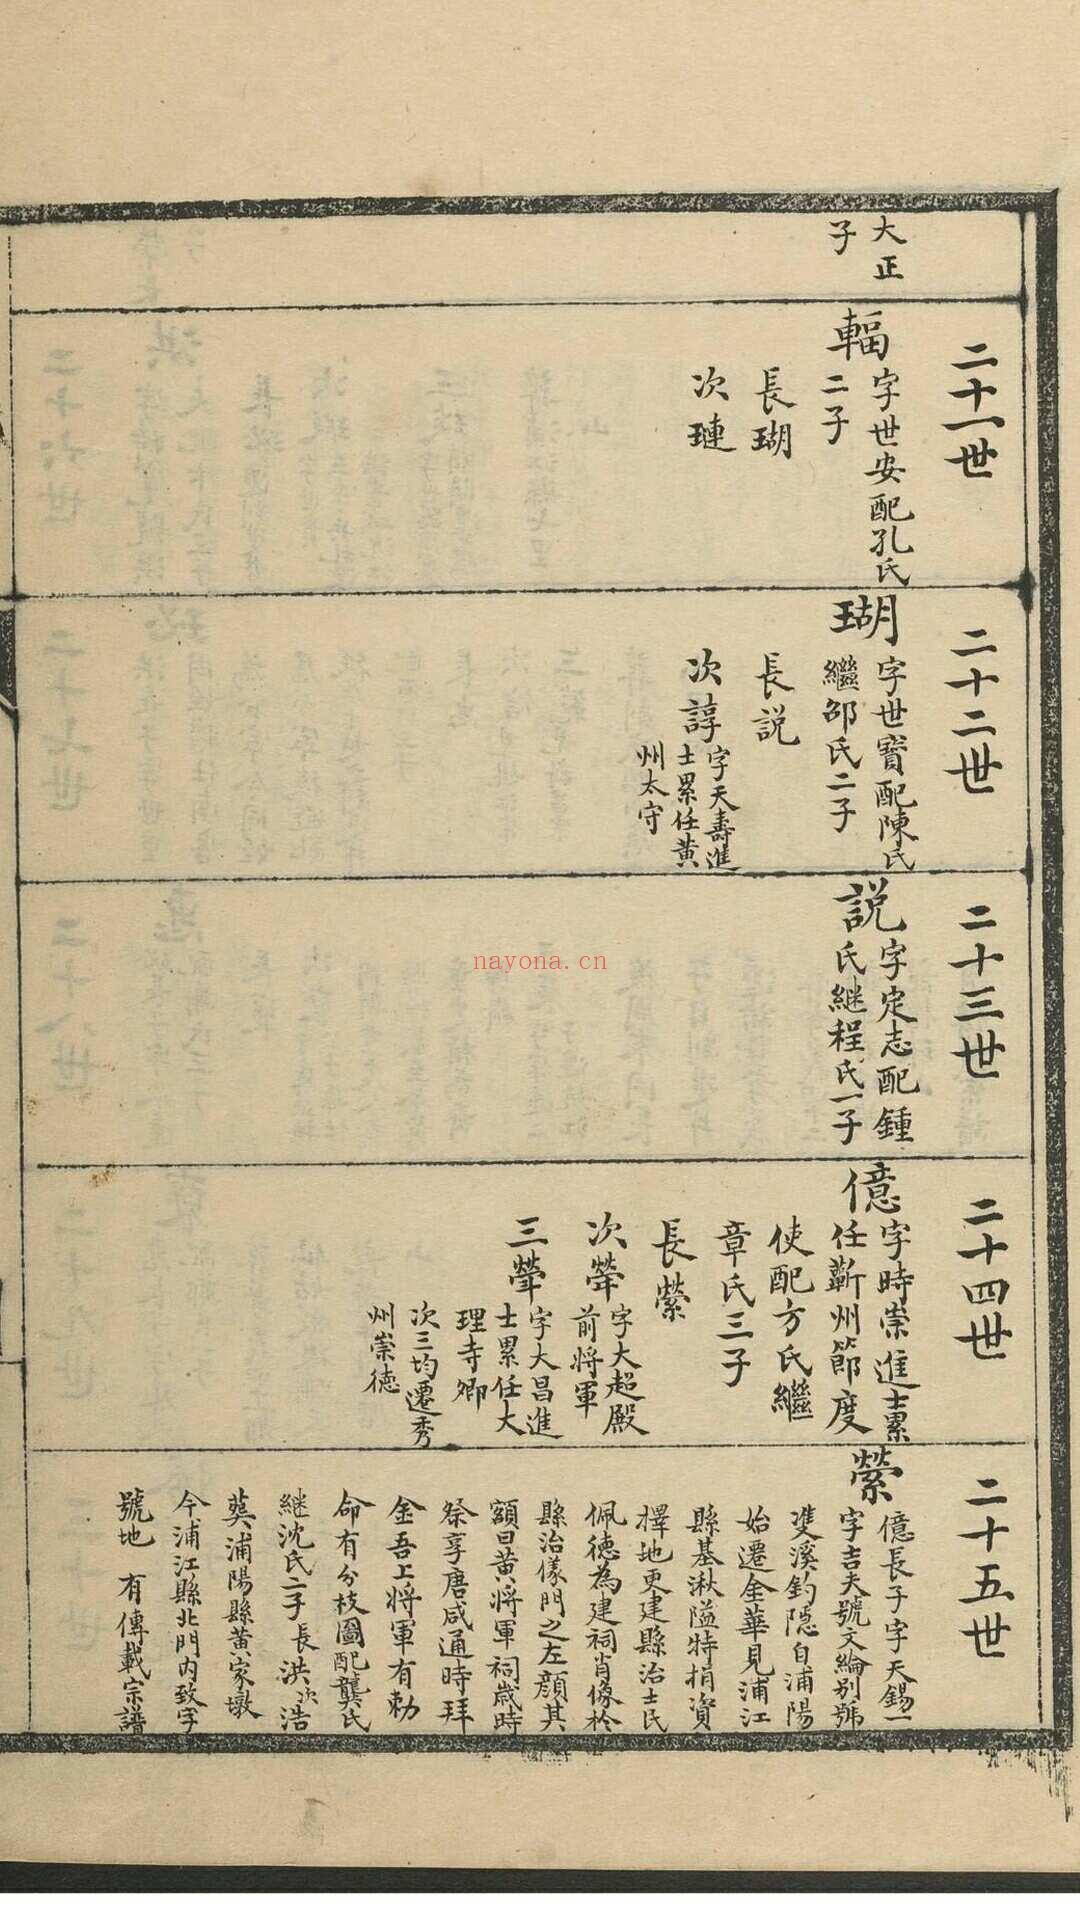 大正
子
二十一世
輻
字世安配孔氏
二子
長瑚
次璉
二十二世
瑚
字世寶配陳氏
繼邵氏二子
長説
次諄
字天壽進
士累任黄
州太守
二十三世
説
字定志配鍾
氏継程氏一子
nayona.cn
二十四世
億
字時崇進士累
任蘄州節度
使配方氏繼
章氏三子
長縈
次犖
字大超殿
前將軍
三
字大昌進
士累任大
理寺卿
次三均遷秀
州崇徳
二十五世
縈
億長子字天錫一
字吉夫號文綸别號
雙溪釣隱自浦陽
始遷金華見浦江
縣基湫隘特捐資
擇地更建縣治士民
佩徳為建祠肖像於
縣治儀門之左顔其
額曰黄將軍祠歲時
祭享唐咸通時拜
金吾上將軍有勅
命有分枝圖配龔氏
継沈氏二子長洪次浩
葬浦陽縣黄家墩
今浦江縣北門内致字
號地 有傳載宗譜